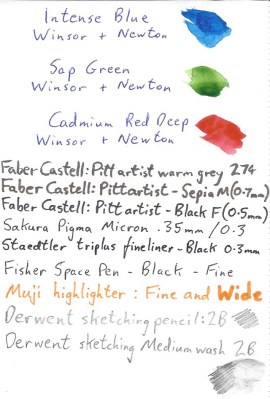 Intense Blue
Winsor + Newton
Sap Green
Winsor + Newton
Cadmium Red Deep
Winsor + Newton
Faber Castell: Pitt artist warm grey 274
Faber Castell: Pitt artist - Sepia M (0.7mm)
Faber Castell: Pitt artist - Black F (0.5mm)
Sakura Pigma Micron .35mm / 0.3
Staedtler triplus fineliner - Black 0.3mm
Fisher Space Pen - Black - Fine
Muji highlighter : Fine and Wide
Derwent sketching pencil: 2B
Derwent sketching Medium wash 2B